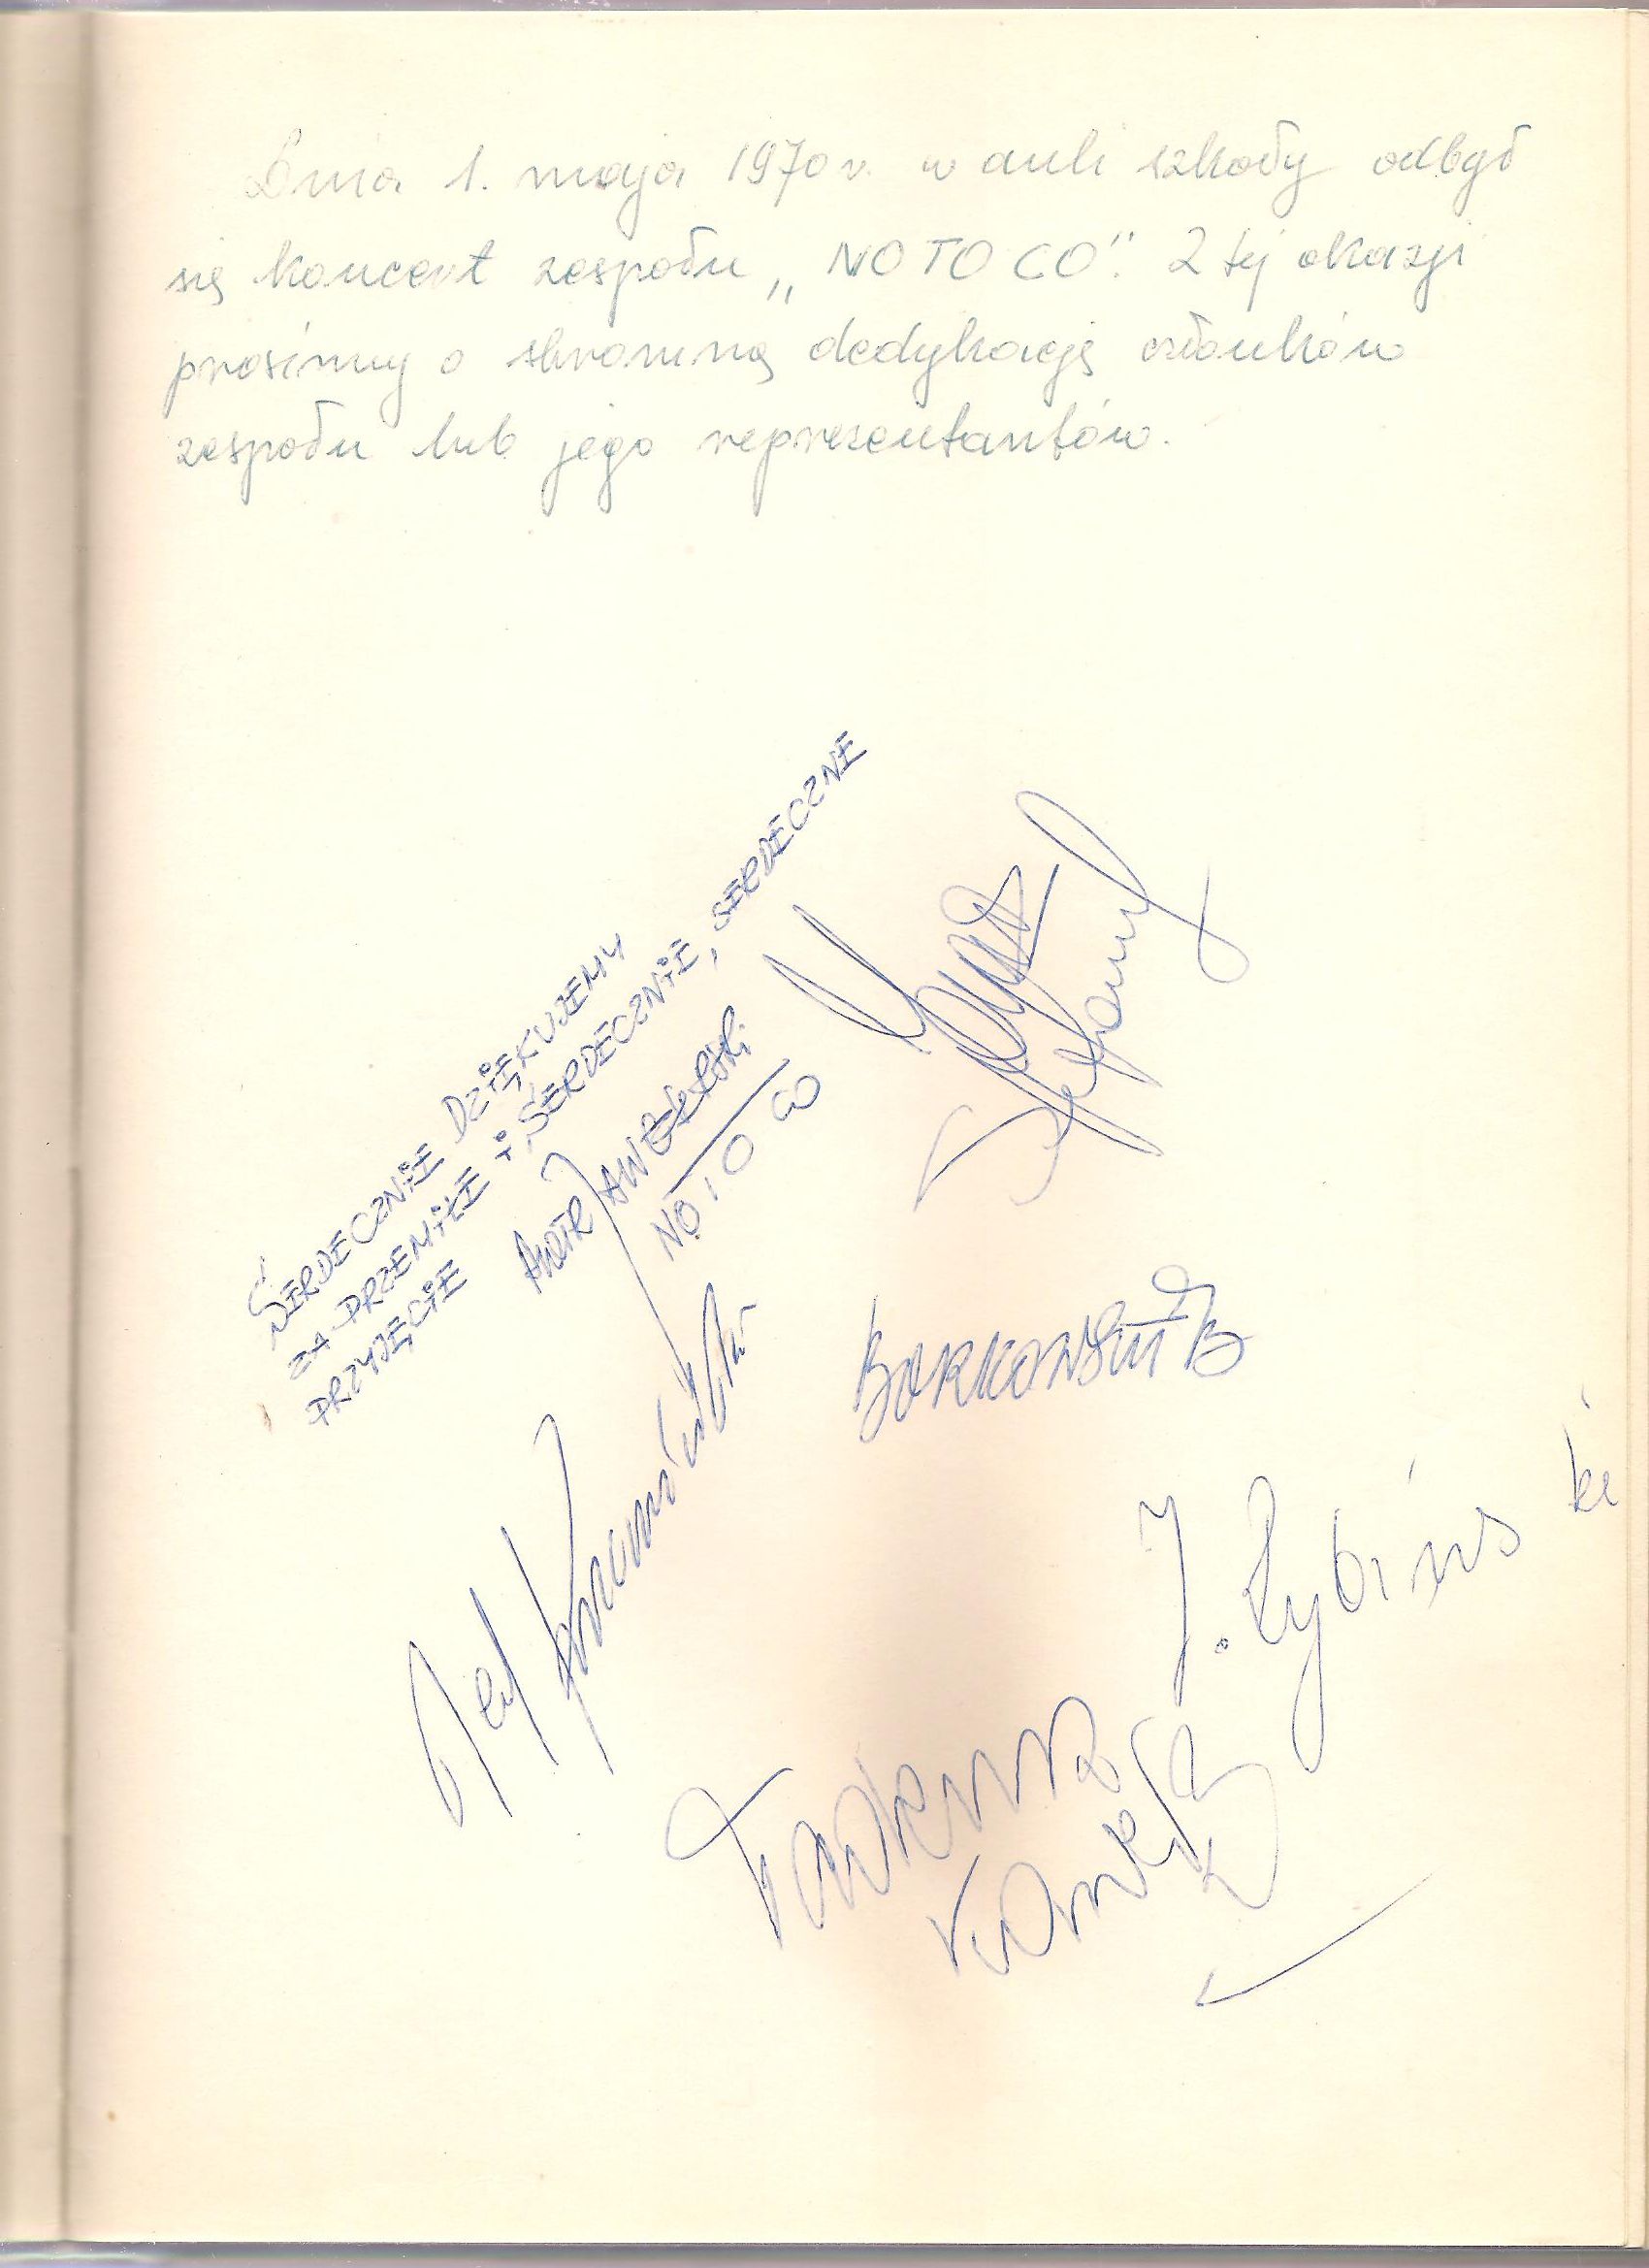 Dnia 1. maja 1970 r. w auli szkoły odbył
się koncert zespołu „NO TO CO”. Z tej okazji
prosimy o skromną dedykację członków
zespołu lub jego reprezentantów.
SERDECZNIE DZIĘKUJEMY
ZA PRZEMIŁE I SERDECZNIE, SERDECZNE
PRZYJĘCIE
PIOTR JANCZERSKI
NO TO CO
Jerzy Krzemiński
BORKOWSKI
J. Rybiński